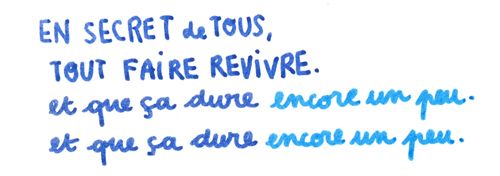 EN SECRET de TOUS,
TOUT FAIRE REVIVRE.
et que ça dure encore un peu.
et que ça dure encore un peu.